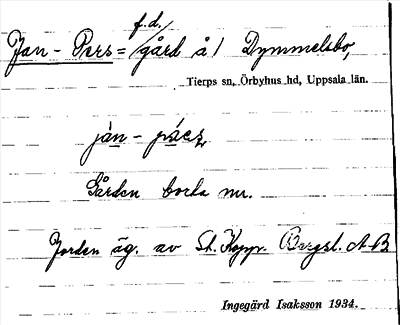 f.d.
Jan-Pers=gård å / Dymmelsbo,
Tierps sn, Örbyhus hd, Uppsala län.
jàn - 
Gården borta nu.
Jorden äg. av St. Kopp. Bergsl. A-B.
Ingegärd Isaksson 1934.